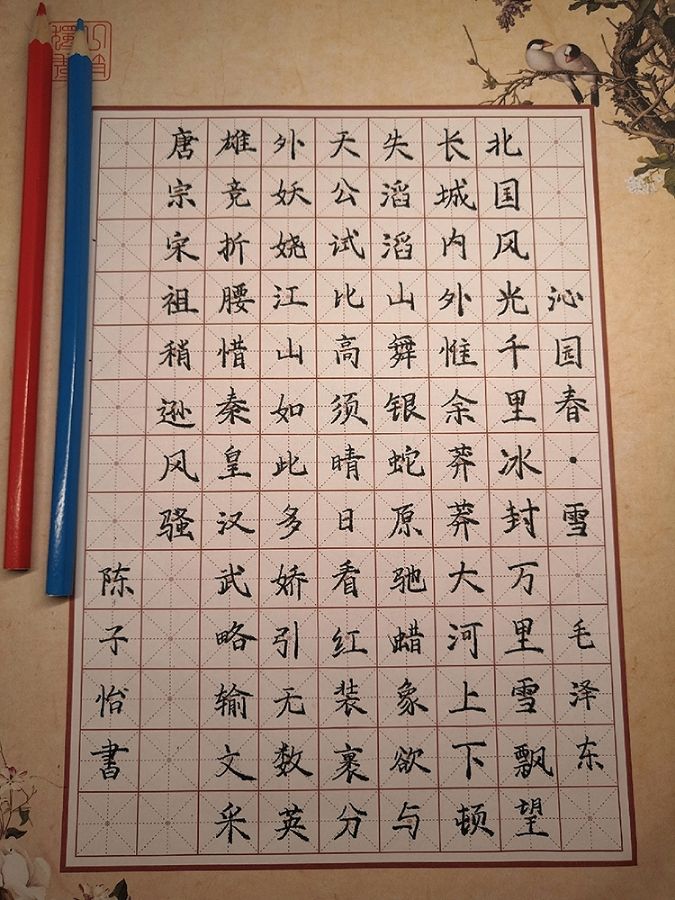 沁园春·雪 毛泽东
北国风光千里冰封万里雪飘望
长城内外惟余莽莽大河上下顿
失滔滔山舞银蛇原驰蜡象欲与
天公试比高须晴日看红装裹分
外妖娆江山如此多娇引无数英
雄竞折腰惜秦皇汉武略输文采
唐宗宋祖稍逊风骚
陈子怡書